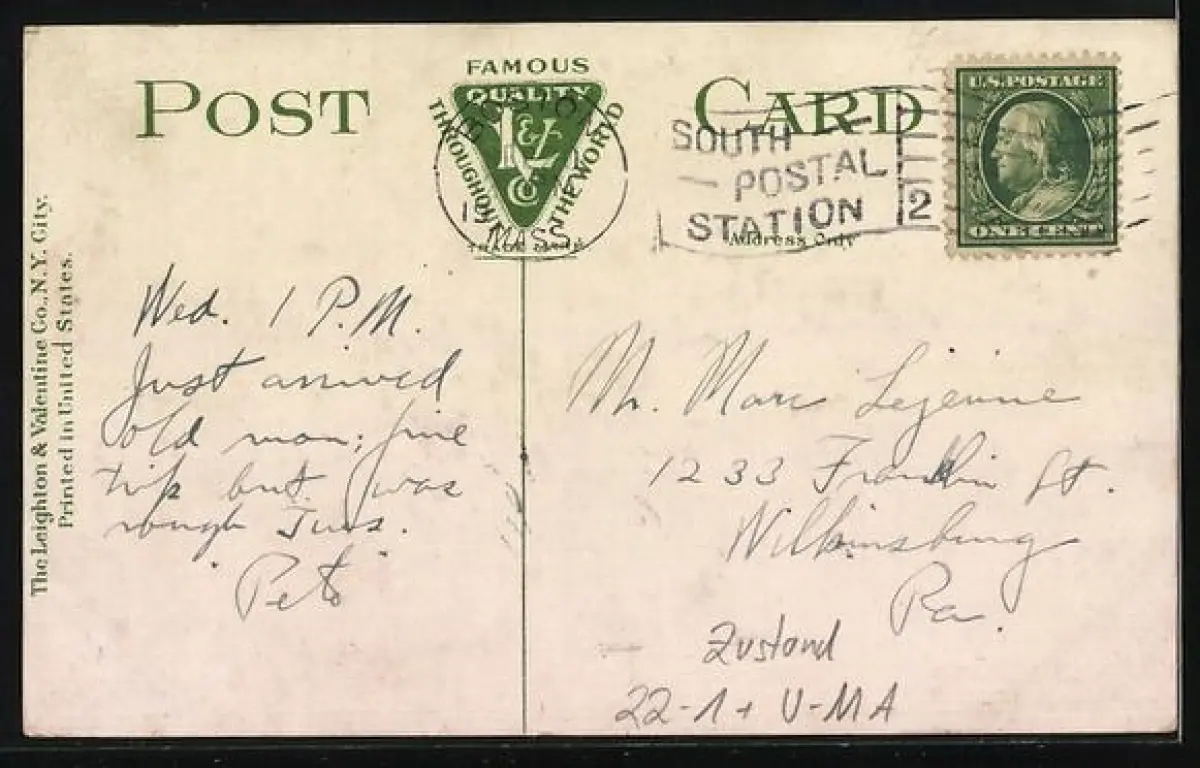 POST CARD
FAMOUS
QUALITY
L&V
Co
THROUGHOUT THE WORLD
MASS.
SOUTH
POSTAL
STATION
2
Address Only
U.S. POSTAGE
ONE CENT
The Leighton & Valentine Co., N.Y. City.
Printed in United States.
Wed. 1 P.M.
Just arrived
old man; fine
trip but was
rough Tues.
"Pete"
Mr. Marc Lejeune
1233 Franklin St.
Wilkinsburg
Pa.
Zustand
22-1+ U-MA